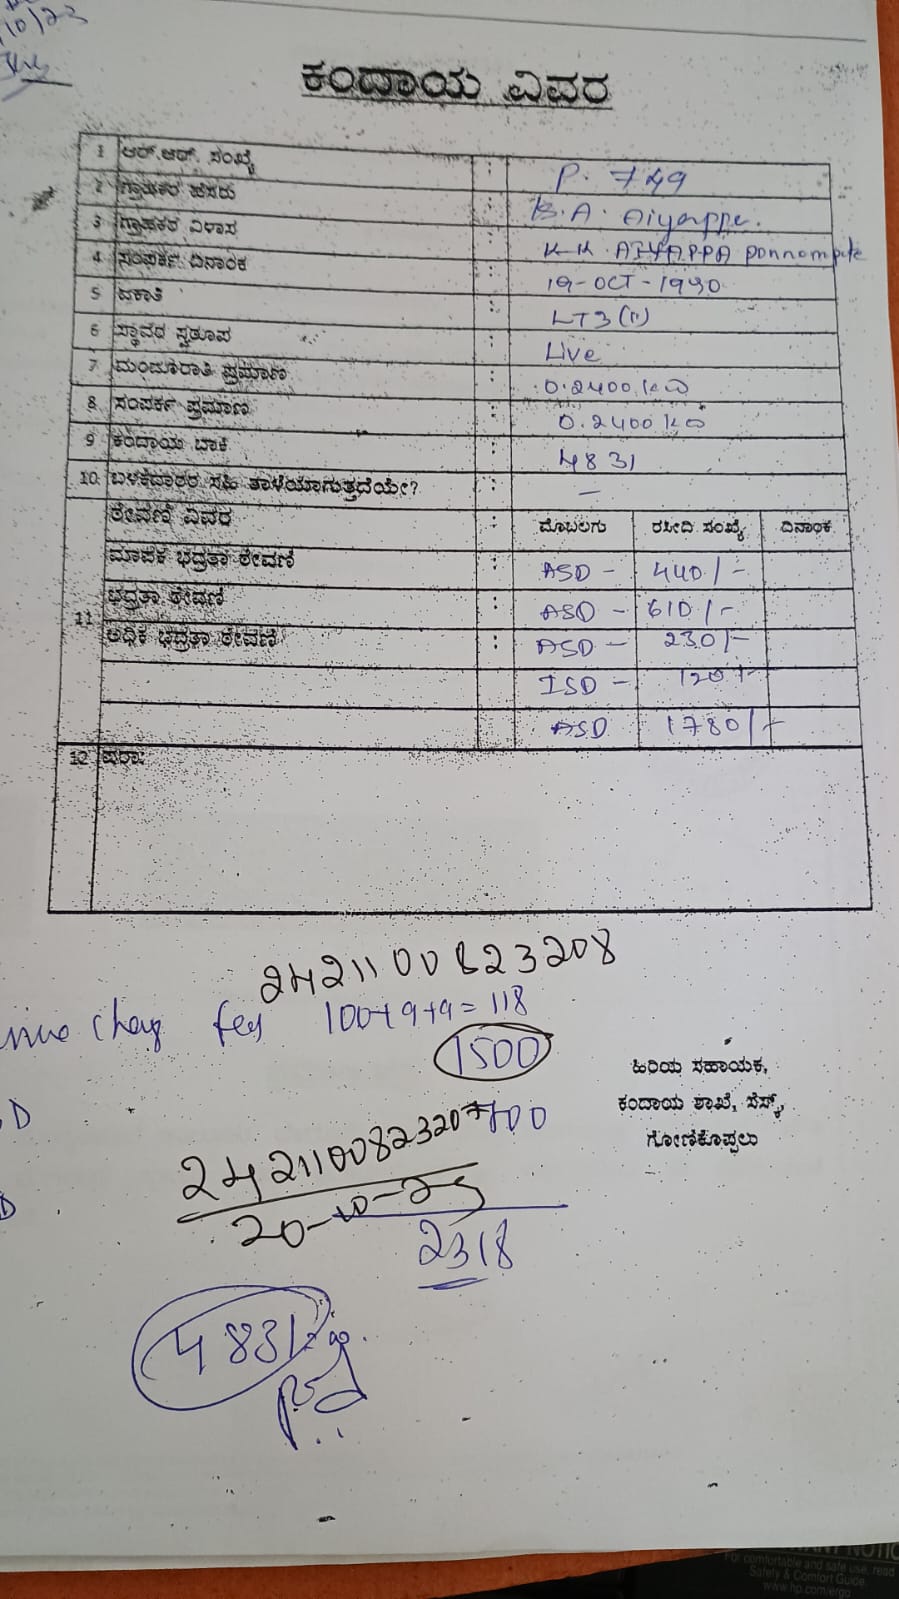 10/23
ಕಂದಾಯ ವಿವರ
1 ಆರ್.ಆರ್. ಸಂಖ್ಯೆ : P. 749
2 ಗ್ರಾಹಕರ ಹೆಸರು : B.A. Aiyappa.
3 ಗ್ರಾಹಕರ ವಿಳಾಸ : K K AIYAPPA ponnampete
4 ಸಂಪರ್ಕ ದಿನಾಂಕ : 19-OCT-1990
5 ಜಕಾತಿ : LT3(i)
6 ಸ್ಥಾವರ ಸ್ವರೂಪ : Live
7 ಮಂಜೂರಾತಿ ಪ್ರಮಾಣ : 0.2400 KW
8 ಸಂಪರ್ಕ ಪ್ರಮಾಣ : 0.2400 KW
9 ಕಂದಾಯ ಬಾಕಿ : 4831
10 ಬಳಕೆದಾರರ ಸಹಿ ತಾಳೆಯಾಗುತ್ತದೆಯೇ? : —
11 ಠೇವಣಿ ವಿವರ : ಮೊಬಲಗು ರಸೀದಿ ಸಂಖ್ಯೆ ದಿನಾಂಕ
ಮಾಪಕ ಭದ್ರತಾ ಠೇವಣಿ : ASD - 440/-
ಭದ್ರತಾ ಠೇವಣಿ : ASD - 610/-
ಅಧಿಕ ಭದ್ರತಾ ಠೇವಣಿ : ASD - 230/-
ISD - 120/-
ASD 1780/-
12 ಷರಾ:
242110082​3208
fees 100+9+9=118
1500
D
ಹಿರಿಯ ಸಹಾಯಕ,
ಕಂದಾಯ ಶಾಖೆ, ಸೆಸ್ಕ್,
ಗೋಣಿಕೊಪ್ಪಲು
700
2421100823207
D
20-10-25
2318
4831